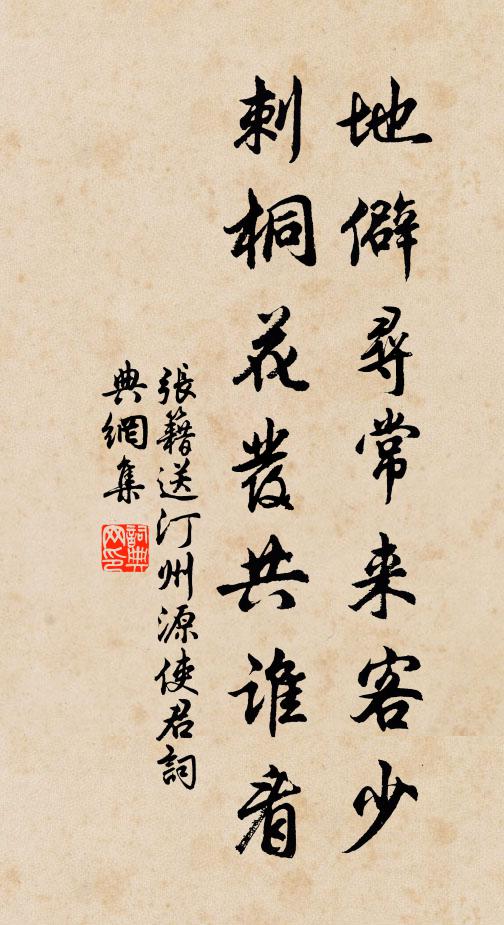 地僻尋常来客少
刺桐花發共誰看
張籍送汀州源使君詞
典網集
詞典網印